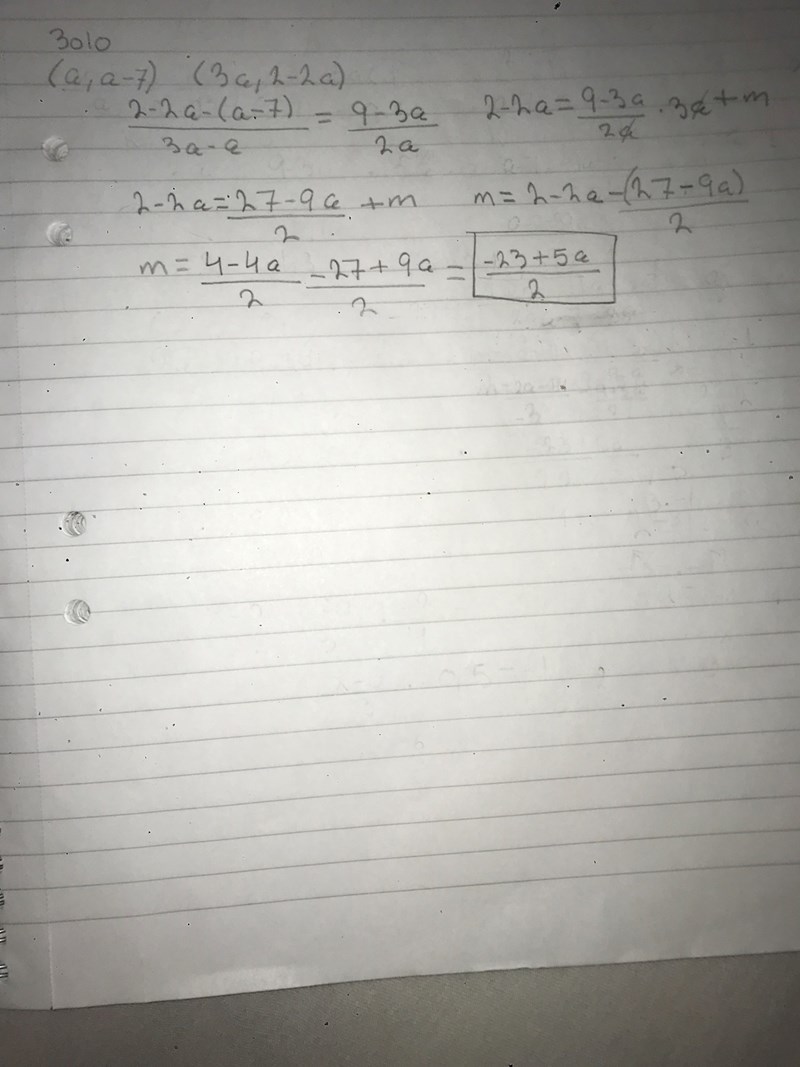 3010
(a, a-7) (3a, 2-2a)
2-2a-(a-7)/3a-a = 9-3a/2a 2-2a = 9-3a/2a · 3a + m
2-2a = 27-9a/2 + m m = 2-2a-(27-9a)/2
m = 4-4a/2 -27+9a/2 = -23+5a/2